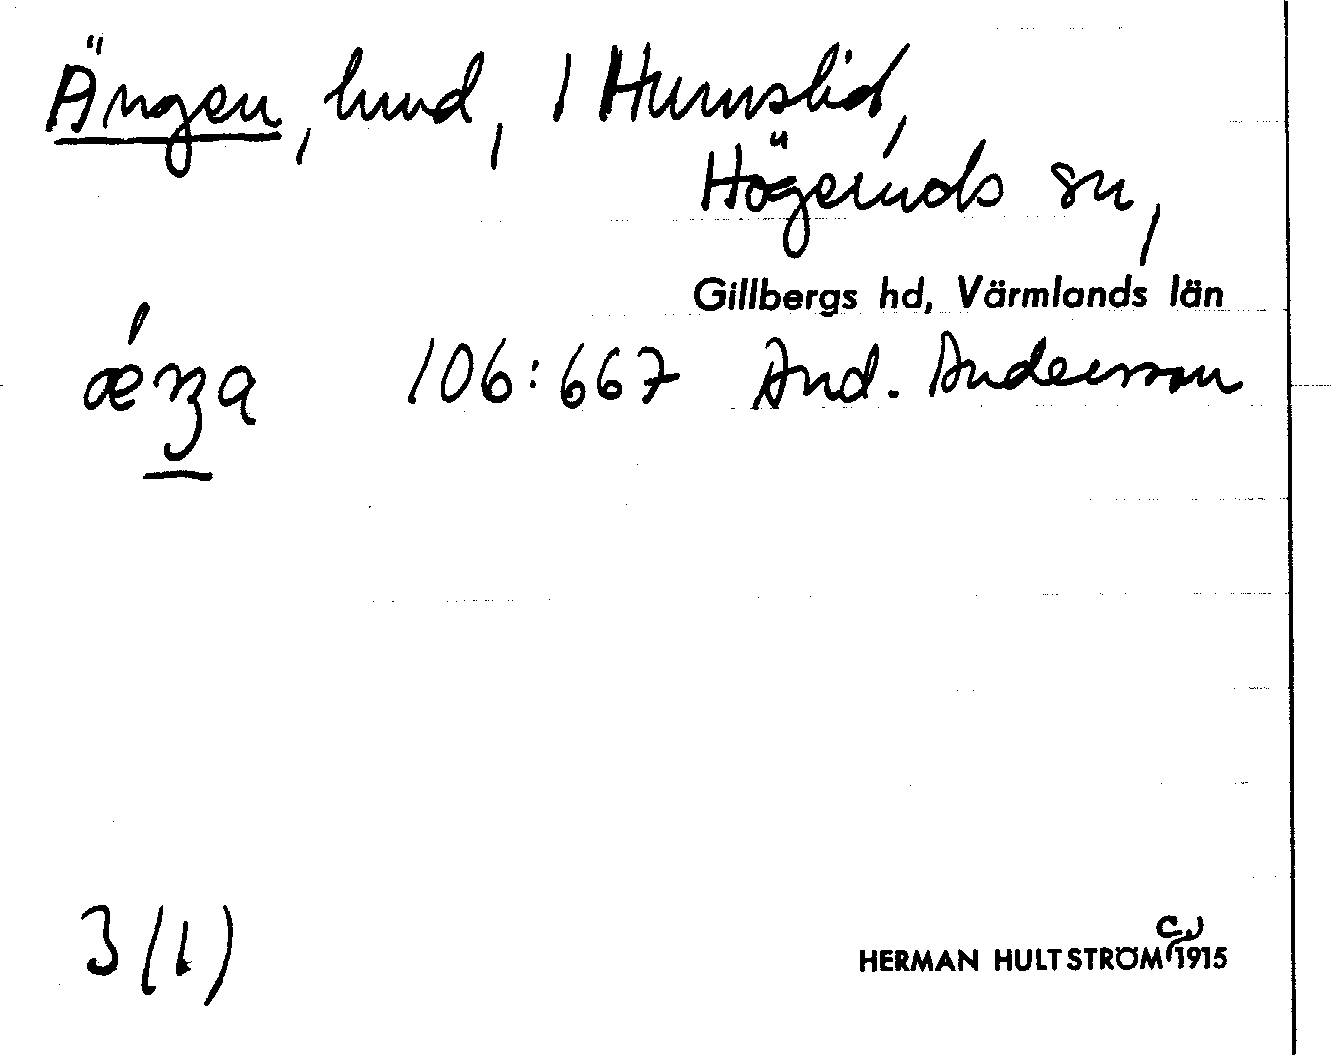 Ängen, lund, 1 Humslid,
Högeruds sn,
Gillbergs hd, Värmlands län
106:667 And. Andersson
3(1)
HERMAN HULTSTRÖM 1915